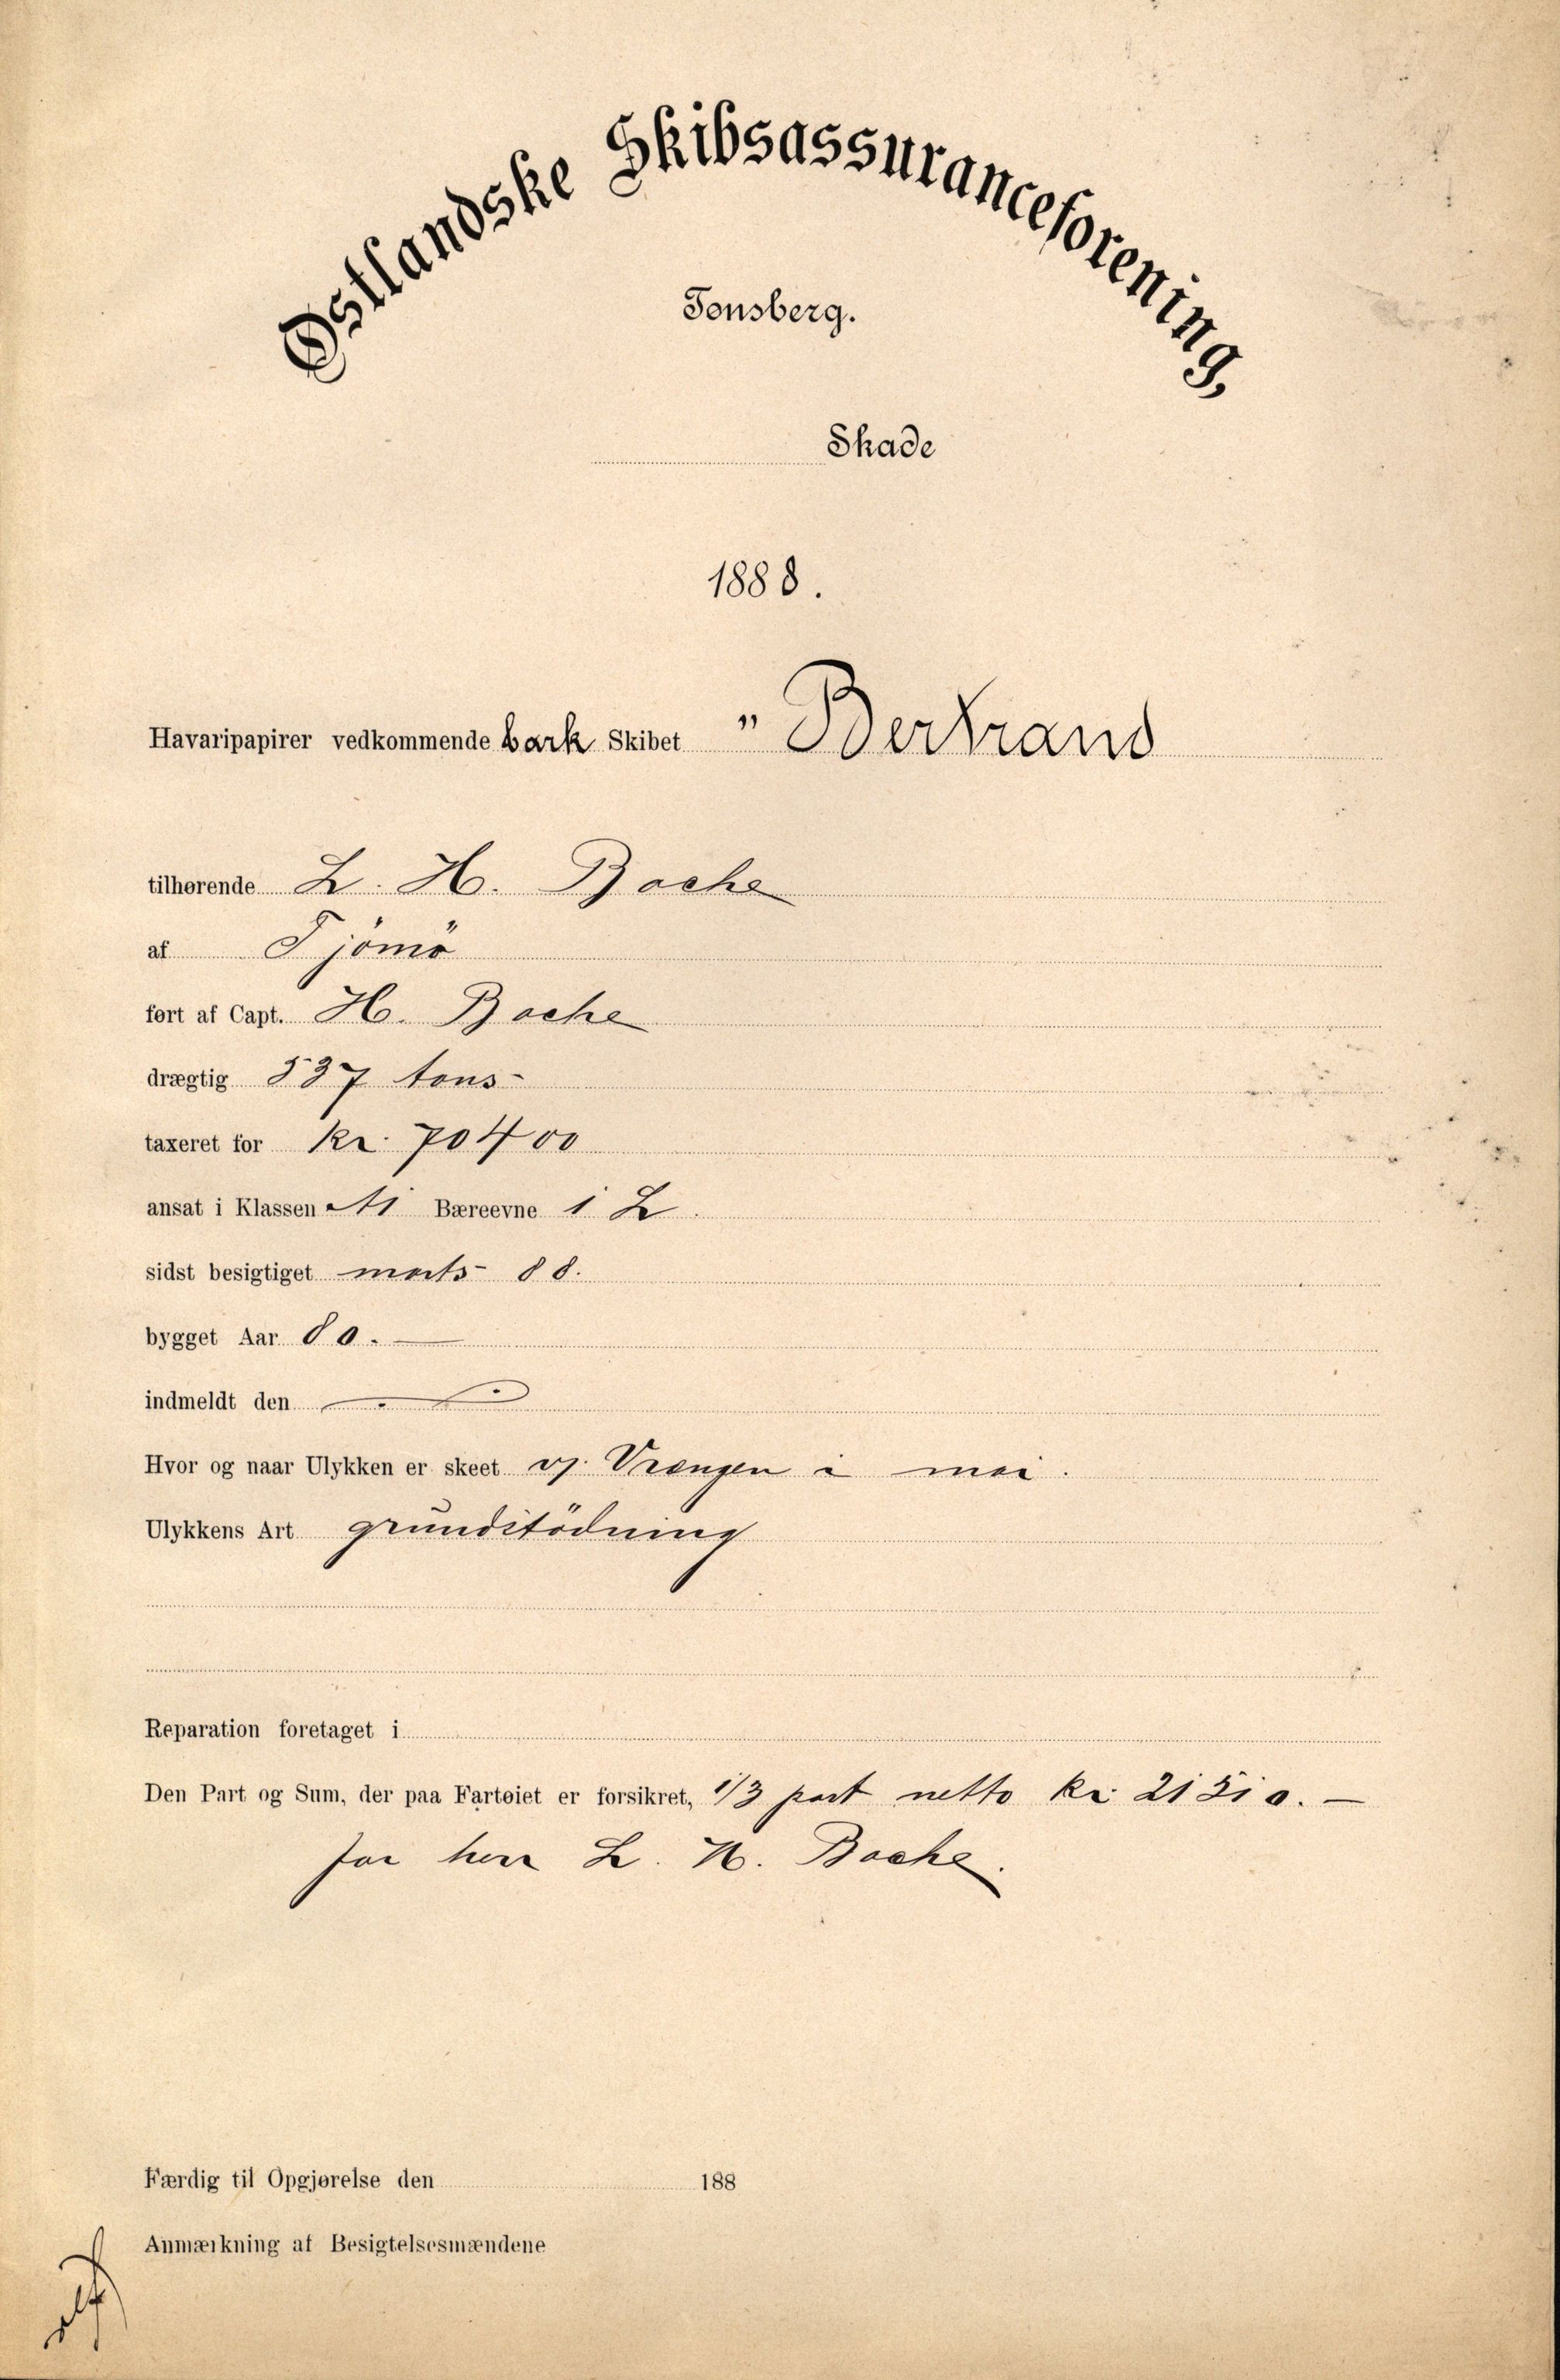 Østlandske Skibsassuranceforening,
Tønsberg.
Skade
1888.
Havaripapirer vedkommende bark Skibet „Bertrand
tilhørende L. H. Bache
af Tjömö
ført af Capt. H. Bache
drægtig 537 tons
taxeret for Kr. 70400
ansat i Klassen A1 Bæreevne 1 L.
sidst besigtiget marts 88.
bygget Aar 80.
indmeldt den
Hvor og naar Ulykken er skeet v/ Vrengen i mai.
Ulykkens Art grundstödning
Reparation foretaget i
Den Part og Sum, der paa Fartøiet er forsikret, 1/3 part netto Kr. 21510. —
for herr L. H. Bache.
Færdig til Opgjørelse den 188
Anmærkning af Besigtelsesmændene